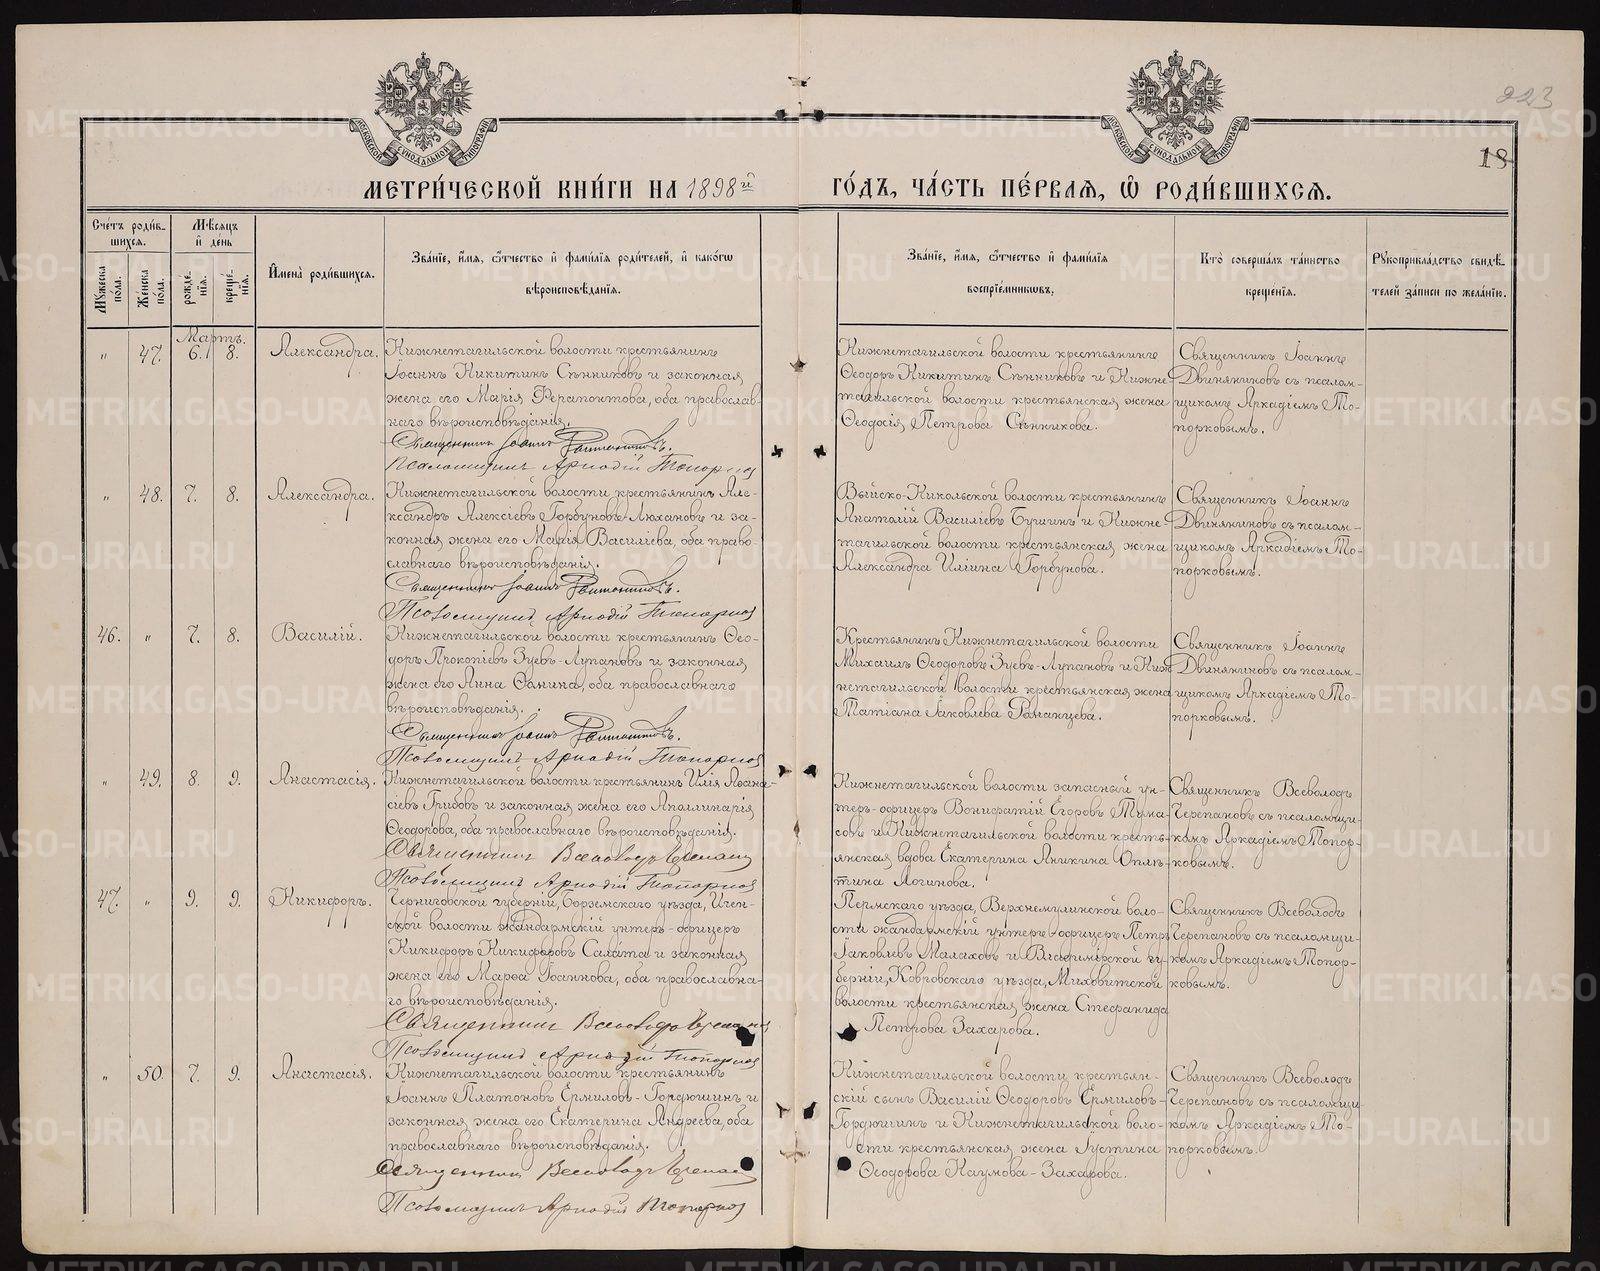 223
18
МОСКОВСКОЙ СѴНОДАЛЬНОЙ ТИПОГРАФІИ
МОСКОВСКОЙ СѴНОДАЛЬНОЙ ТИПОГРАФІИ
МЕТРИ́ЧЕСКОЙ КНИ́ГИ НА 1898й ГО́ДЪ, ЧА́СТЬ ПЕ́РВАѦ, Ѡ҆ РОДИ́ВШИХСѦ.
Сче́тъ роди́в-
шихсѧ.
Мꙋ́жеска по́ла.
Же́нска по́ла.
Мѣ́сѧцъ
и҆ де́нь
рожде́-
нїѧ.
креще́-
нїѧ.
И҆мена̀ роди́вшихсѧ.
Зва́нїе, и҆́мѧ, ѻ҆́тчество и҆ фами́лїѧ роди́телей, и҆ како́гѡ
вѣроисповѣ́данїѧ.
Зва́нїе, и҆́мѧ, ѻ҆́тчество и҆ фами́лїѧ
воспрїе́мникѡвъ.
Кто̀ соверша́лъ та́инство
креще́нїѧ.
Рꙋкоприкла́дство свидѣ́-
телей за́писи по жела́нїю.
Мартъ.
" 47. 6. 8. Александра.
Нижнетагильской волости крестьянинъ
Іоаннъ Никитинъ Сѣнниковъ и законная
жена его Марія Ферапонтова, оба православ-
наго вѣроисповѣданія.
Священникъ Іоаннъ
Псаломщикъ Аркадій Топорков
Нижнетагильской волости крестьянинъ
Ѳеодоръ Никитинъ Сѣнниковъ и Нижне-
тагильской волости крестьянская жена
Ѳеодосія Петрова Сѣнникова.
Священникъ Іоаннъ
Двиняниновъ съ псалом-
щикомъ Аркадіемъ То-
порковымъ.
" 48. 7. 8. Александра.
Нижнетагильской волости крестьянинъ Але-
ксандръ Алексіевъ Горбуновъ-Люхановъ и за-
конная жена его Марія Василіева, оба право-
славнаго вѣроисповѣданія.
Священникъ Іоаннъ
Псаломщикъ Аркадій Топорков
Выйско-Никольской волости крестьянинъ
Анатолій Василіевъ Бушинъ и Нижне-
тагильской волости крестьянская жена
Александра Иліина Горбунова.
Священникъ Іоаннъ
Двиняниновъ съ псалом-
щикомъ Аркадіемъ То-
порковымъ.
46. " 7. 8. Василій.
Нижнетагильской волости крестьянинъ Ѳео-
доръ Прокопіевъ Зуевъ-Лупановъ и законная
жена его Анна Ѳанина, оба православнаго
вѣроисповѣданія.
Священникъ Іоаннъ
Псаломщикъ Аркадій Топорков
Крестьянинъ Нижнетагильской волости
Михаилъ Ѳеодоровъ Зуевъ-Лупановъ и Ниж-
нетагильской волости крестьянская жена
Татіана Іаковлева Романцева.
Священникъ Іоаннъ
Двиняниновъ съ псалом-
щикомъ Аркадіемъ То-
порковымъ.
" 49. 8. 9. Анастасія.
Нижнетагильской волости крестьянинъ Илія Аѳана-
сіевъ Грибовъ и законная жена его Аполлинарія
Ѳеодорова, оба православнаго вѣроисповѣданія.
Священникъ Всеволодъ Черепанов
Псаломщикъ Аркадій Топорков
Нижнетагильской волости запасный ун-
теръ-офицеръ Вонифатій Егоровъ Тума-
совъ и Нижнетагильской волости кресть-
янская вдова Екатерина Аникина
Логинова.
Священникъ Всеволодъ
Черепановъ съ псаломщи-
комъ Аркадіемъ Топор-
ковымъ.
47. " 9. 9. Никифоръ.
Черниговской губерніи, Борзенскаго уѣзда, Ичен-
ской волости жандармскій унтеръ-офицеръ
Никифоръ Никифоровъ Салата и законная
жена его Марѳа Іоаннова, оба православна-
го вѣроисповѣданія.
Священникъ Всеволодъ Черепанов
Псаломщикъ Аркадій Топорков
Пермскаго уѣзда, Верхнемулинской воло-
сти жандармскій унтеръ-офицеръ Петръ
Іаковлевъ Малаховъ и Владимірской гу-
берніи, Ковровскаго уѣзда,
волости крестьянская жена Стефанида
Петрова Захарова.
Священникъ Всеволодъ
Черепановъ съ псаломщи-
комъ Аркадіемъ Топор-
ковымъ.
" 50. 7. 9. Анастасія.
Нижнетагильской волости крестьянинъ
Іоаннъ Платоновъ Ермиловъ-Гордюшинъ и
законная жена его Екатерина Андреева, оба
православнаго вѣроисповѣданія.
Священникъ Всеволодъ Черепанов
Псаломщикъ Аркадій Топорков
Нижнетагильской волости крестьян-
скій сынъ Василій Ѳеодоровъ Ермиловъ-
Гордюшинъ и Нижнетагильской воло-
сти крестьянская жена Іустина
Ѳеодорова Наумова-Захарова.
Священникъ Всеволодъ
Черепановъ съ псаломщи-
комъ Аркадіемъ То-
порковымъ.
METRIKI.GASO-URAL.RU